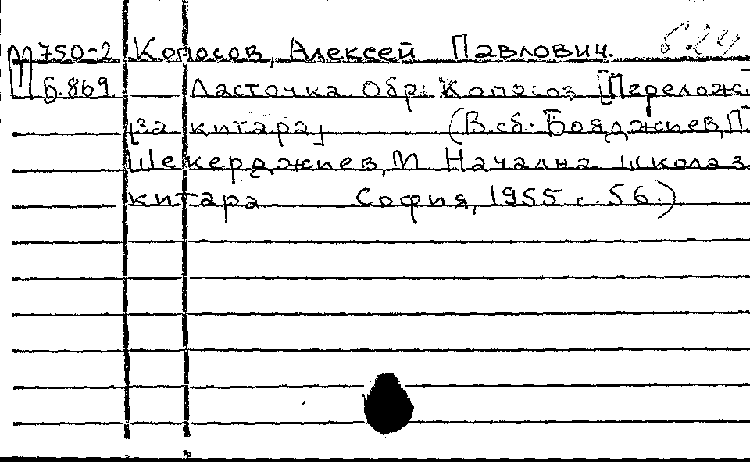 М750-2 Колосов, Алексей Павлович.
Б.869 Ласточка Обр. Колосов [Перелож.
за китара] (В сб. Бояджиев, П.
Шекерджиев, М Начална школа з
китара София, 1955 с 56.)